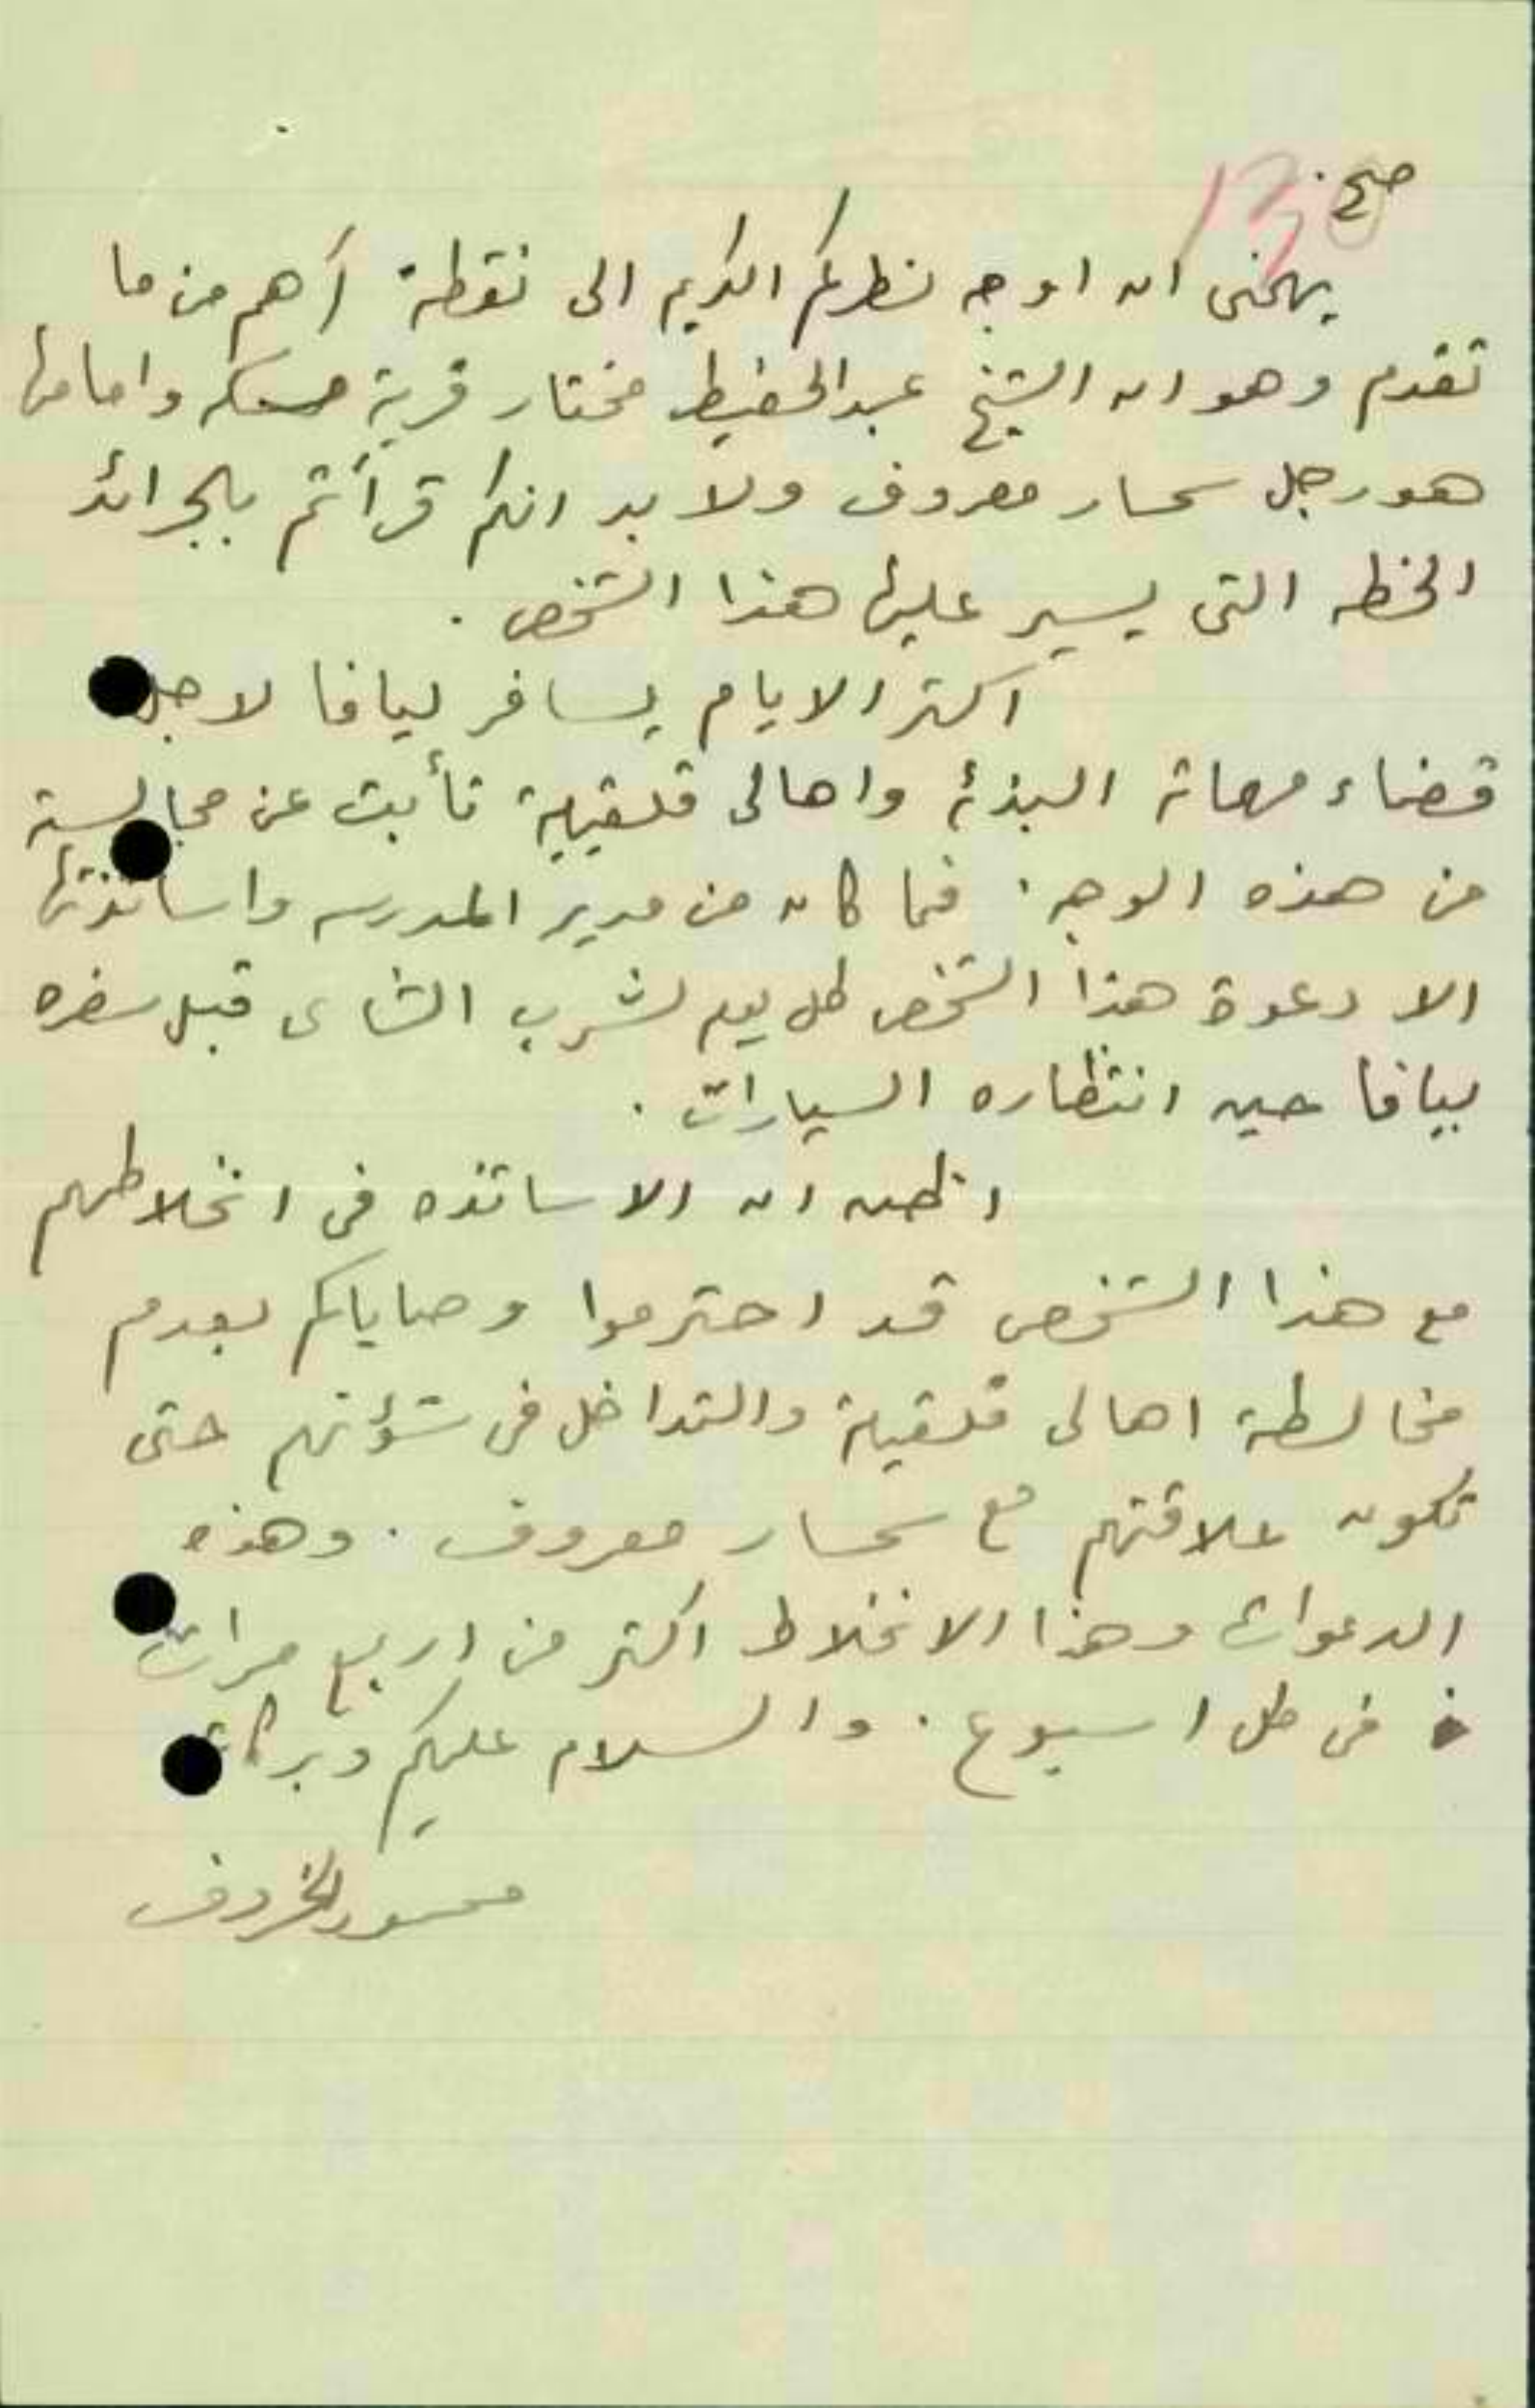 يهمنى ان اوجه نظركم الكريم الى نقطة أهم من ما
تقدم وهو ان الشيخ عبدالحفيظ مختار قرية مسكه وامامها
هو رجل سمسار معروف ولا بد انكم قرأتم بالجرائد
الخطه التى يسير عليها هذا الشخص .
اكثر الايام يسافر ليافا لاجل
قضاء مهماته البذئه واهالى قلقيلية تأبت عن مجالسته
من هذه الوجه . فما كان من مدير المدرسه واساتذتها
الا دعوة هذا الشخص كل يوم لشرب الشاى قبل سفره
ليافا حين انتظاره السيارات .
اظن ان الاساتذه فى انخلاطهم
مع هذا الشخص قد احترموا وصاياكم بعدم
مخالطة اهالى قلقيلية والتداخل فى شؤنهم حتى
تكون علاقتهم مع سمسار معروف . وهذه
الدعوات وهذا الانخلاط اكثر من اربع مرات
فى كل اسبوع . والسلام عليكم وبركاته